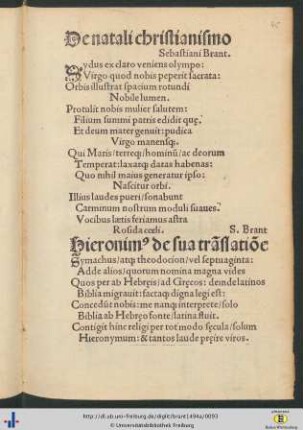 De natali christianismo
Sebastiani Brant.
Sydus ex claro veniens olympo:
Virgo quod nobis peperit sacrata:
Orbis illustrat spacium rotundi
Nobile lumen.
Protulit nobis mulier salutem:
Filium summi patris edidit quę:
Et deum mater genuit: pudica
Virgo manensqꝫ.
Qui Maris/ terręqꝫ/hominū/ac deorum
Temperat: laxatqꝫ datas habenas:
Quo nihil maius generatur ipso:
Nascitur orbi.
Illius laudes pueri/sonabunt
Carminum nostrum moduli suaues.
Vocibus lætis feriamus astra
Rosida cœli. S. Brant
Hieronimꝰ de sua trāslatiōe
Symachus/atqꝫ theodocion/vel septuaginta:
Adde alios/quorum nomina magna vides
Quos per ab Hebręis/ad Gręcos: deinde latinos
Biblia migrauit: factaqꝫ digna legi est:
Concedūt nobis: me nanqꝫ interprete/solo
Biblia ab Hebręo fonte/latina fluit.
Contigit hinc religi per tot modo sęcula/solum
Hieronymum: & tantos laude pręire viros.
http://dl.ub.uni-freiburg.de/diglit/brant1494a/0093
© Universitätsbibliothek Freiburg